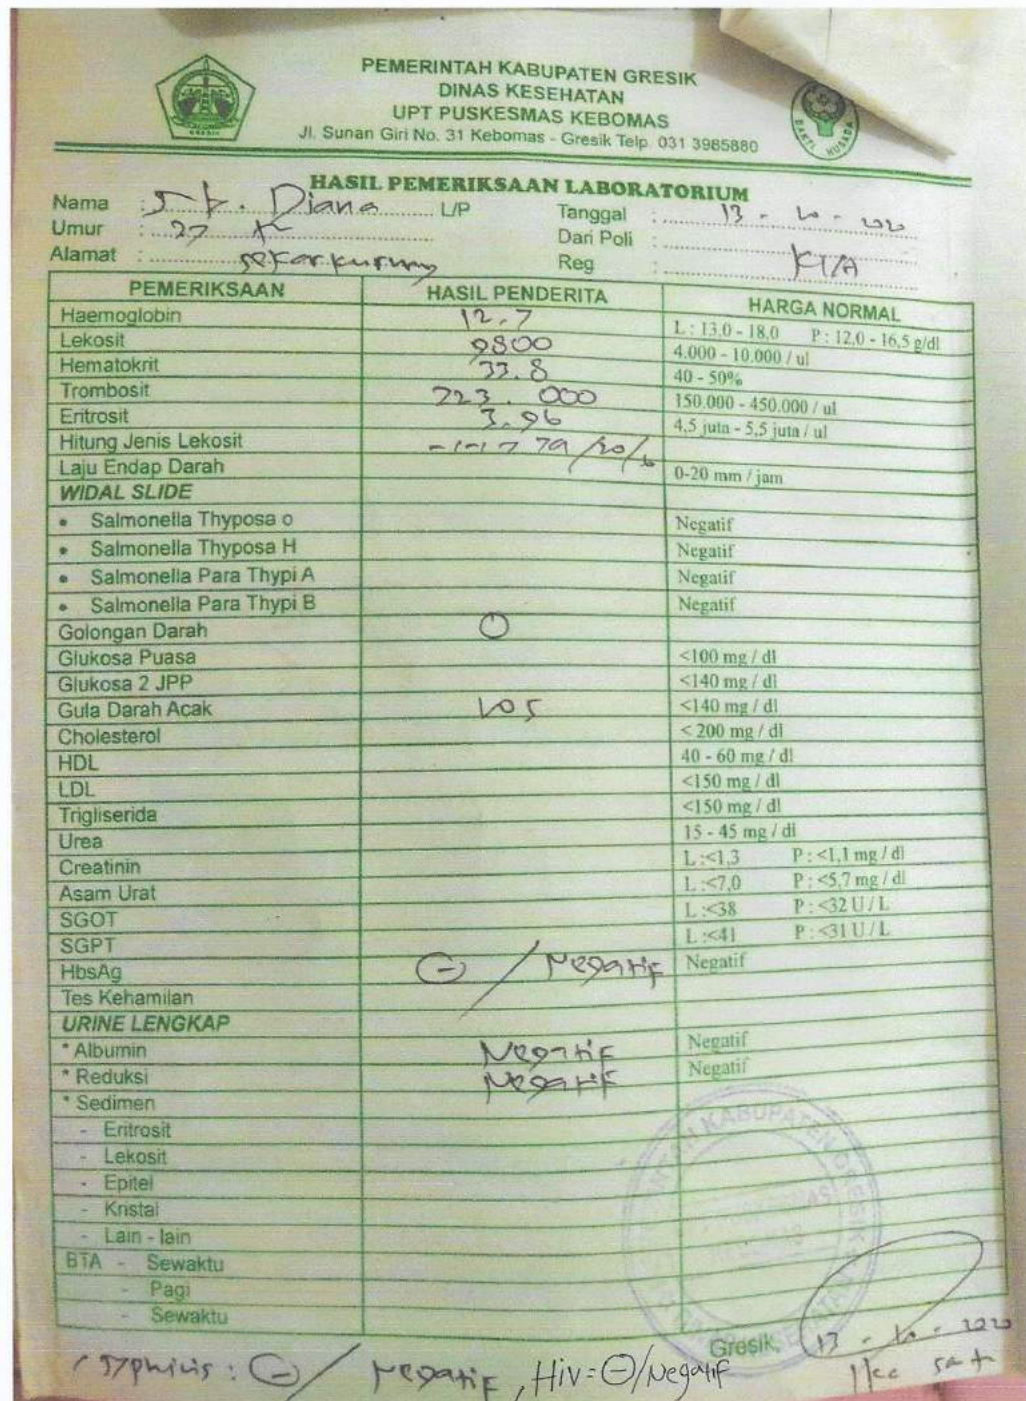 PEMERINTAH KABUPATEN GRESIK
DINAS KESEHATAN
UPT PUSKESMAS KEBOMAS
Jl. Sunan Giri No. 31 Kebomas - Gresik Telp. 031 3985880
GRESIK
BAKTI HUSADA
HASIL PEMERIKSAAN LABORATORIUM
Nama : Diana L/P Tanggal : 13 - 10 - 2020
Umur : 27 Dari Poli :
Alamat : sekarkurung Reg : KIA
PEMERIKSAAN HASIL PENDERITA HARGA NORMAL
Haemoglobin 12.7 L : 13,0 - 18,0 P : 12,0 - 16,5 g/dl
Lekosit 9800 4.000 - 10.000 / ul
Hematokrit 33.8 40 - 50%
Trombosit 223.000 150.000 - 450.000 / ul
Eritrosit 3.96 4,5 juta - 5,5 juta / ul
Hitung Jenis Lekosit
Laju Endap Darah 0-20 mm / jam
WIDAL SLIDE
• Salmonella Thyposa o Negatif
• Salmonella Thyposa H Negatif
• Salmonella Para Thypi A Negatif
• Salmonella Para Thypi B Negatif
Golongan Darah O
Glukosa Puasa <100 mg / dl
Glukosa 2 JPP <140 mg / dl
Gula Darah Acak 105 <140 mg / dl
Cholesterol < 200 mg / dl
HDL 40 - 60 mg / dl
LDL <150 mg / dl
Trigliserida <150 mg / dl
Urea 15 - 45 mg / dl
Creatinin L :<1,3 P : <1,1 mg / dl
Asam Urat L :<7,0 P : <5,7 mg / dl
SGOT L :<38 P : <32 U / L
SGPT L :<41 P : <31 U / L
HbsAg (-) / Negatif Negatif
Tes Kehamilan
URINE LENGKAP
* Albumin Negatif Negatif
* Reduksi Negatif Negatif
* Sedimen
- Eritrosit
- Lekosit
- Epitel
- Kristal
- Lain - lain
BTA - Sewaktu
- Pagi
- Sewaktu
Gresik, 13 - 10 - 2020
syphilis : (-) / Negatif, HIV = (-) / Negatif